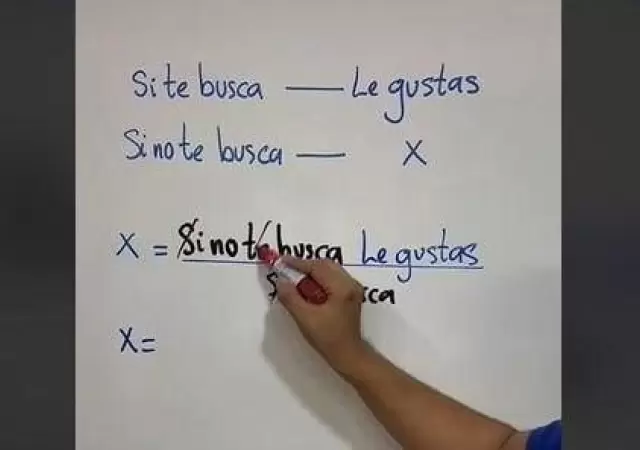 Si te busca — Le gustas
Si no te busca — X
X = Si no te busca Le gustas
X =